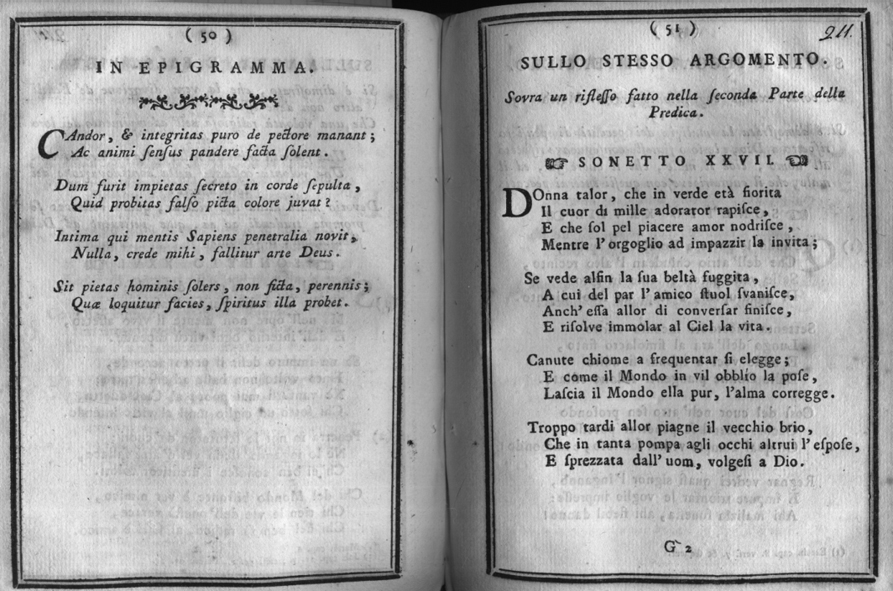 ( 50 )
IN EPIGRAMMA.
CAndor, & integritas puro de pectore manant;
Ac animi ſenſus pandere facta ſolent.
Dum furit impietas ſecreto in corde ſepulta,
Quid probitas falſo picta colore juvat?
Intima qui mentis Sapiens penetralia novit,
Nulla, crede mihi, fallitur arte Deus.
Sit pietas hominis ſolers, non ficta, perennis;
Quæ loquitur facies, ſpiritus illa probet.
( 51 )
211.
SULLO STESSO ARGOMENTO.
Sovra un rifleſſo fatto nella ſeconda Parte della
Predica.
SONETTO XXVII
DOnna talor, che in verde età fiorita
Il cuor di mille adorator rapiſce,
E che ſol pel piacere amor nodriſce,
Mentre l'orgoglio ad impazzir la invita;
Se vede alfin la ſua beltà fuggita,
A cui del par l'amico ſtuol ſvaniſce,
Anch'eſſa allor di converſar finiſce,
E riſolve immolar al Ciel la vita.
Canute chiome a frequentar ſi elegge;
E come il Mondo in vil obblìo la poſe,
Laſcia il Mondo ella pur, l'alma corregge.
Troppo tardi allor piagne il vecchio brio,
Che in tanta pompa agli occhi altrui l'eſpoſe,
E ſprezzata dall'uom, volgeſi a Dio.
G 2